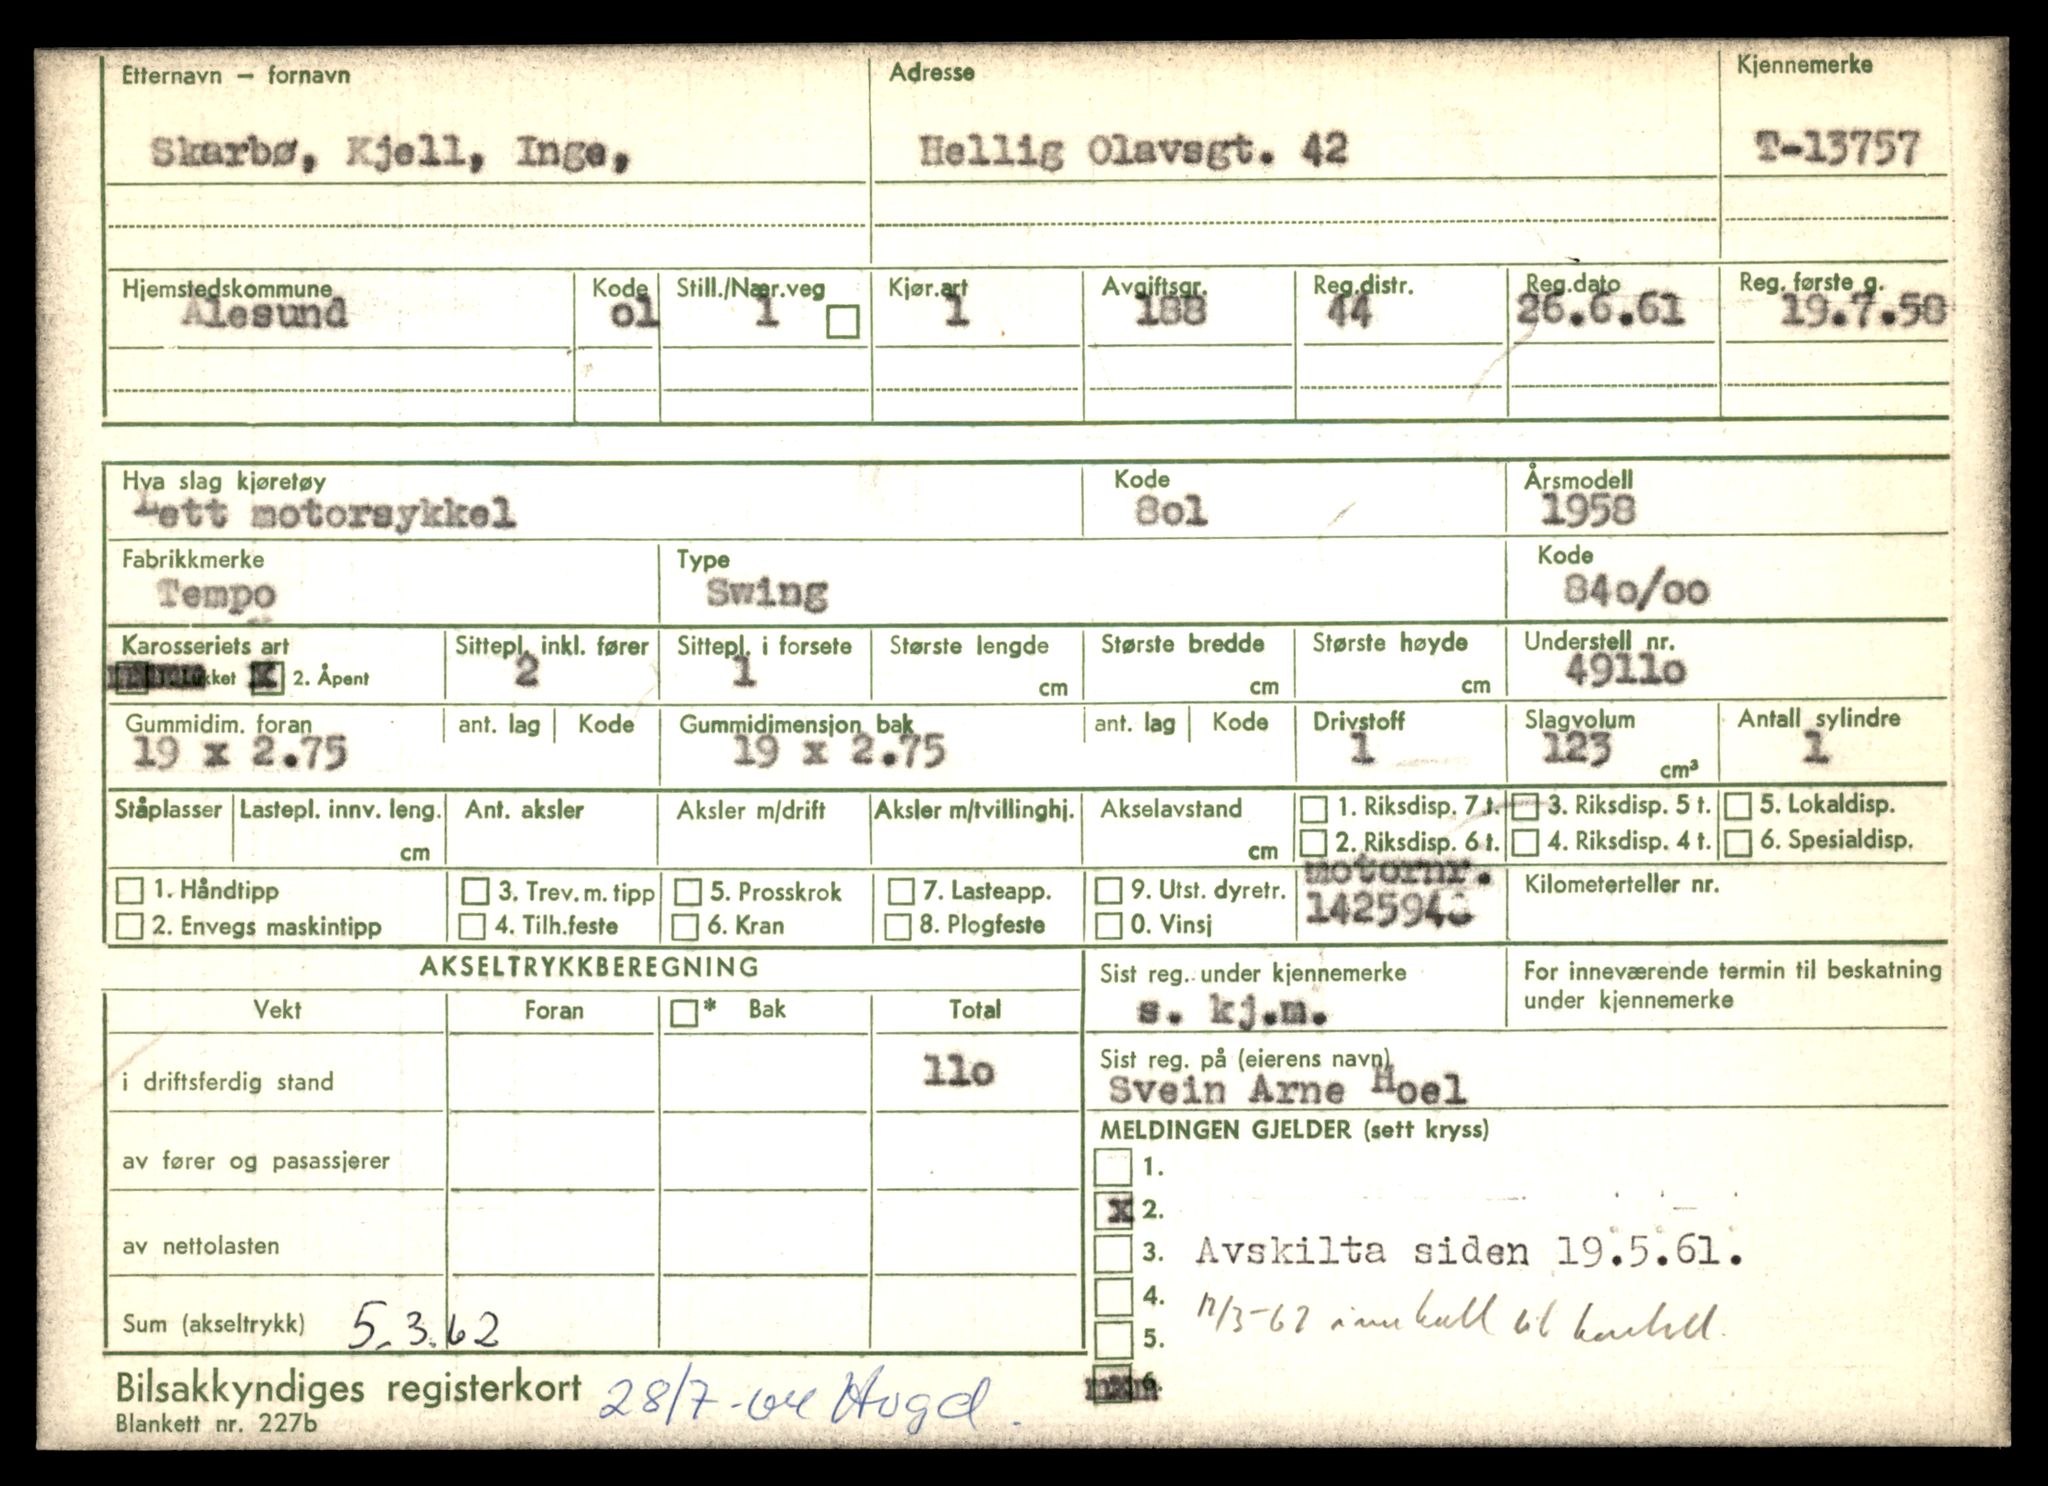 Etternavn — fornavn Adresse Kjennemerke
Skarbø, Kjell, Inge, Hellig Olavsgt. 42 T-13757
Hjemstedskommune Kode Still./Nær.veg Kjør.art Avgiftsgr. Reg.distr. Reg.dato Reg. første g.
Alesund ol 1 1 188 44 26.6.61 19.7.58
Hva slag kjøretøy Kode Årsmodell
Lett motorsykkel 8ol 1958
Fabrikkmerke Type Kode
Tempo Swing 84o/oo
Karosseriets art Sittepl. inkl. fører Sittepl. i forsete Største lengde Største bredde Største høyde Understell nr.
1. Lukket X 2. Åpent 2 1 cm cm cm 4911o
Gummidim. foran ant. lag Kode Gummidimensjon bak ant. lag Kode Drivstoff Slagvolum Antall sylindre
19 x 2.75 19 x 2.75 1 123 cm³ 1
Ståplasser Lastepl. innv. leng. Ant. aksler Aksler m/drift Aksler m/tvillinghj. Akselavstand 1. Riksdisp. 7 t. 3. Riksdisp. 5 t. 5. Lokaldisp.
cm cm 2. Riksdisp. 6 t. 4. Riksdisp. 4 t. 6. Spesialdisp.
1. Håndtipp 3. Trev. m. tipp 5. Prosskrok 7. Lasteapp. 9. Utst. dyretr. motornr. Kilometerteller nr.
2. Envegs maskintipp 4. Tilh.feste 6. Kran 8. Plogfeste 0. Vinsj
AKSELTRYKKBEREGNING Sist reg. under kjennemerke For inneværende termin til beskatning
under kjennemerke
Vekt Foran * Bak Total s. kj.m.
i driftsferdig stand 11o Sist reg. på (eierens navn)
Svein Arne Hoel
MELDINGEN GJELDER (sett kryss)
av fører og pasassjerer 1.
x 2.
av nettolasten 3. Avskilta siden 19.5.61.
4.
Sum (akseltrykk) 5.3.62 5.
6.
Bilsakkyndiges registerkort 28/7-64
Blankett nr. 227b